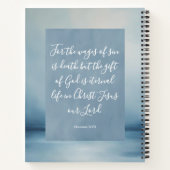 For the wages of sin
is death but the gift
of God is eternal
life in Christ Jesus
our Lord
Romans 6:23